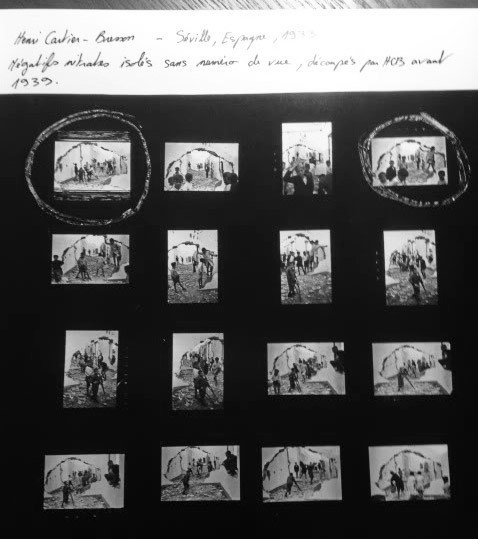 Henri Cartier-Bresson - Séville, Espagne, 1933
Négatifs nitrates isolés sans numéro de vue, découpés par HCB avant
1939.